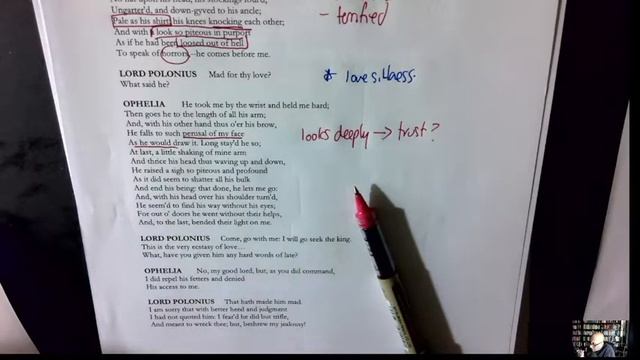 Ungarter'd, and down-gyved to his ancle;
Pale as his shirt; his knees knocking each other;
And with a look so piteous in purport
As if he had been loosed out of hell
To speak of horrors,--he comes before me.
- terrified
LORD POLONIUS Mad for thy love?
What said he?
* lovesickness.
OPHELIA He took me by the wrist and held me hard;
Then goes he to the length of all his arm;
And, with his other hand thus o'er his brow,
He falls to such perusal of my face
As he would draw it. Long stay'd he so;
looks deeply → trust?
At last, a little shaking of mine arm
And thrice his head thus waving up and down,
He raised a sigh so piteous and profound
As it did seem to shatter all his bulk
And end his being: that done, he lets me go:
And, with his head over his shoulder turn'd,
He seem'd to find his way without his eyes;
For out o' doors he went without their helps,
And, to the last, bended their light on me.
LORD POLONIUS Come, go with me: I will go seek the king.
This is the very ecstasy of love...
What, have you given him any hard words of late?
OPHELIA No, my good lord, but, as you did command,
I did repel his fetters and denied
His access to me.
LORD POLONIUS That hath made him mad.
I am sorry that with better heed and judgment
I had not quoted him: I fear'd he did but trifle,
And meant to wreck thee; but, beshrew my jealousy!